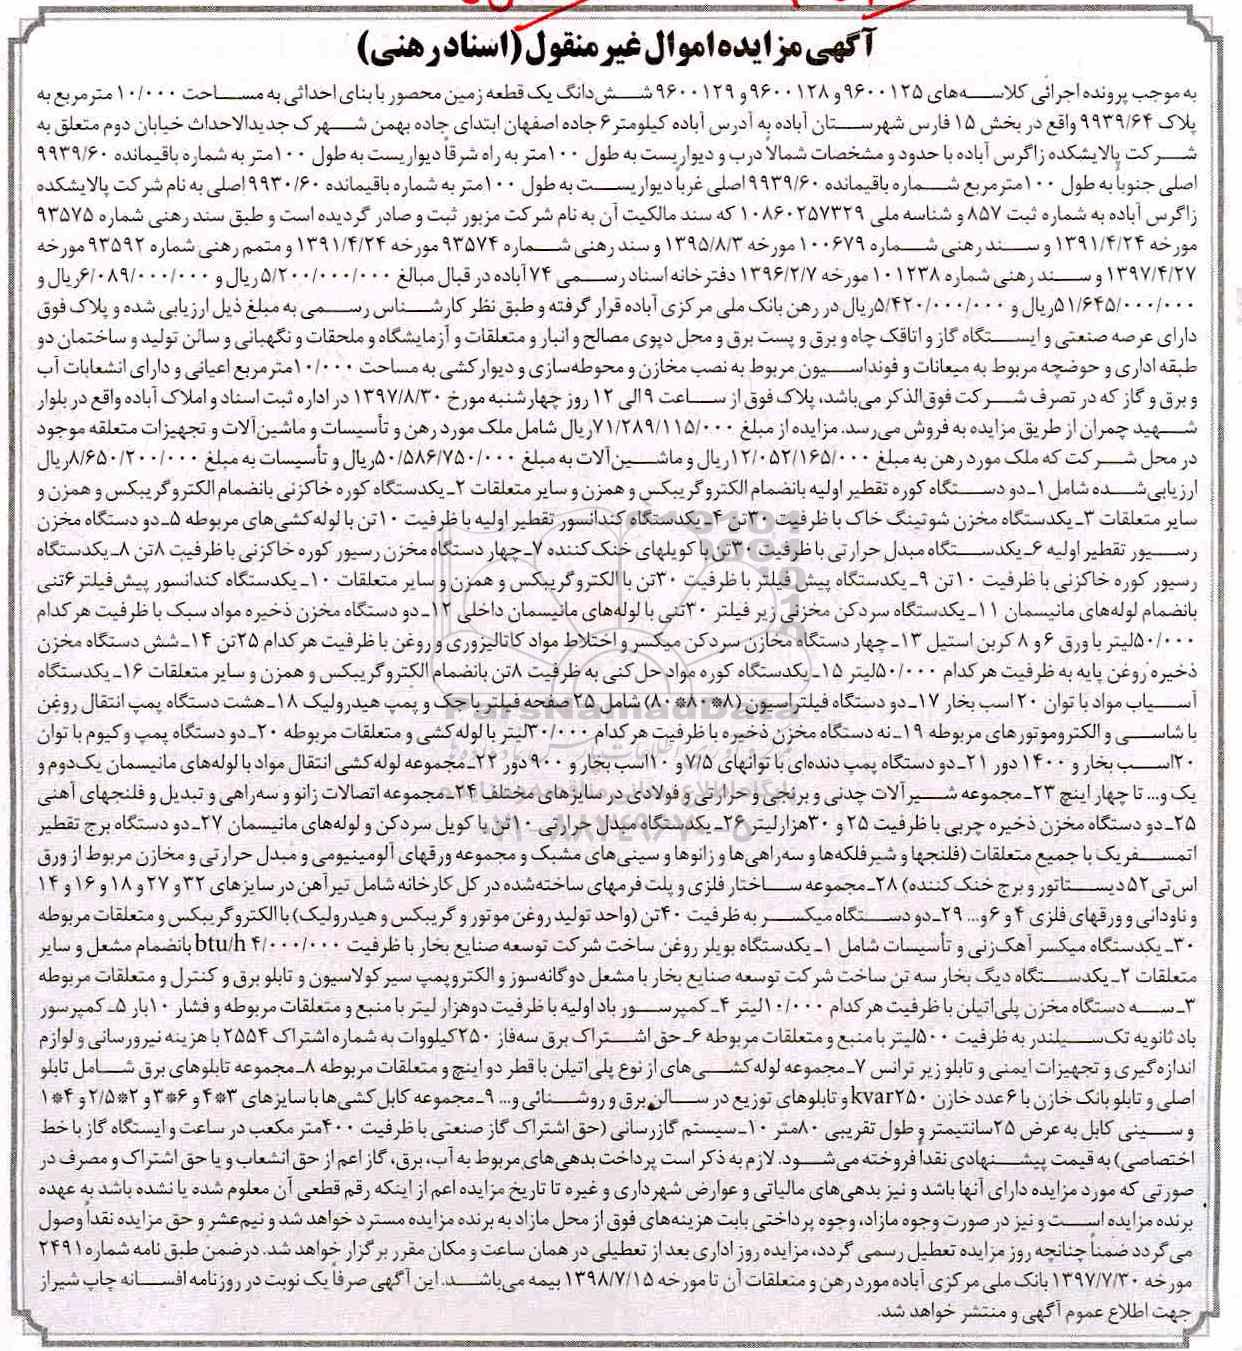 آگهی مزایده اموال غیر منقول (اسناد رهنی)
به موجب پرونده اجرائی کلاسه‌های ۹۶۰۰۱۲۵ و ۹۶۰۰۱۲۸ و ۹۶۰۰۱۲۹ شش‌دانگ یک قطعه زمین محصور با بنای احداثی به مساحت ۱۰/۰۰۰ مترمربع به
پلاک ۹۹۳۹/۶۴ واقع در بخش ۱۵ فارس شهرستان آباده به آدرس آباده کیلومتر۶ جاده اصفهان ابتدای جاده بهمن شهرک جدیدالاحداث خیابان دوم متعلق به
شرکت پالایشکده زاگرس آباده با حدود و مشخصات شمالاً درب و دیواریست به طول ۱۰۰متر به راه شرقاً دیواریست به طول ۱۰۰متر به شماره باقیمانده ۹۹۳۹/۶۰
اصلی جنوباً به طول ۱۰۰مترمربع شماره باقیمانده ۹۹۳۹/۶۰ اصلی غرباً دیواریست به طول ۱۰۰متر به شماره باقیمانده ۹۹۳۰/۶۰اصلی به نام شرکت پالایشکده
زاگرس آباده به شماره ثبت ۸۵۷ و شناسه ملی ۱۰۸۶۰۲۵۷۳۲۹ که سند مالکیت آن به نام شرکت مزبور ثبت و صادر گردیده است و طبق سند رهنی شماره ۹۳۵۷۵
مورخه ۱۳۹۱/۴/۲۴ و سند رهنی شماره ۱۰۰۶۷۹ مورخه ۱۳۹۵/۸/۳ و سند رهنی شماره ۹۳۵۷۴ مورخه ۱۳۹۱/۴/۲۴ و متمم رهنی شماره ۹۳۵۹۲ مورخه
۱۳۹۷/۴/۲۷ و سند رهنی شماره ۱۰۱۲۳۸ مورخه ۱۳۹۶/۲/۷ دفترخانه اسناد رسمی ۷۴ آباده در قبال مبالغ ۵/۲۰۰/۰۰۰/۰۰۰ ریال و ۶/۰۸۹/۰۰۰/۰۰۰ریال و
۵۱/۶۴۵/۰۰۰/۰۰۰ریال و ۵/۴۲۰/۰۰۰/۰۰۰ریال در رهن بانک ملی مرکزی آباده قرار گرفته و طبق نظر کارشناس رسمی به مبلغ ذیل ارزیابی شده و پلاک فوق
دارای عرصه صنعتی و ایستگاه گاز و اتاقک چاه و برق و پست برق و محل دپوی مصالح و انبار و متعلقات و آزمایشگاه و ملحقات و نگهبانی و سالن تولید و ساختمان دو
طبقه اداری و حوضچه مربوط به میعانات و فونداسیون مربوط به نصب مخازن و محوطه‌سازی و دیوارکشی به مساحت ۱۰/۰۰۰مترمربع اعیانی و دارای انشعابات آب
و برق و گاز که در تصرف شرکت فوق‌الذکر می‌باشد، پلاک فوق از ساعت ۹ الی ۱۲ روز چهارشنبه مورخ ۱۳۹۷/۸/۳۰ در اداره ثبت اسناد و املاک آباده واقع در بلوار
شهید چمران از طریق مزایده به فروش می‌رسد. مزایده از مبلغ ۷۱/۲۸۹/۱۱۵/۰۰۰ریال شامل ملک مورد رهن و تأسیسات و ماشین‌آلات و تجهیزات متعلقه موجود
در محل شرکت که ملک مورد رهن به مبلغ ۱۲/۰۵۲/۱۶۵/۰۰۰ریال و ماشین‌آلات به مبلغ ۵۰/۵۸۶/۷۵۰/۰۰۰ریال و تأسیسات به مبلغ ۸/۶۵۰/۲۰۰/۰۰۰ریال
ارزیابی‌شده شامل ۱ـ دو دستگاه کوره تقطیر اولیه بانضمام الکتروگریبکس و همزن و سایر متعلقات ۲ـ یکدستگاه کوره خاکزنی بانضمام الکتروگریبکس و همزن و
سایر متعلقات ۳ـ یکدستگاه مخزن شوتینگ خاک با ظرفیت ۳۰تن ۴ـ یکدستگاه کندانسور تقطیر اولیه با ظرفیت ۱۰تن با لوله‌کشی‌های مربوطه ۵ـ دو دستگاه مخزن
رسیور تقطیر اولیه ۶ـ یکدستگاه مبدل حرارتی با ظرفیت ۳۰تن با کویلهای خنک‌کننده ۷ـ چهار دستگاه مخزن رسیور کوره خاکزنی با ظرفیت ۸تن ۸ـ یکدستگاه
رسیور کوره خاکزنی با ظرفیت ۱۰تن ۹ـ یکدستگاه پیش فیلتر با ظرفیت ۳۰تن با الکتروگریبکس و همزن و سایر متعلقات ۱۰ـ یکدستگاه کندانسور پیش‌فیلتر۶تنی
بانضمام لوله‌های مانیسمان ۱۱ـ یکدستگاه سردکن مخزنی زیر فیلتر ۳۰تنی با لوله‌های مانیسمان داخلی ۱۲ـ دو دستگاه مخزن ذخیره مواد سبک با ظرفیت هر کدام
۵۰/۰۰۰لیتر با ورق ۶ و ۸ کربن استیل ۱۳ـ چهار دستگاه مخازن سردکن میکسر و اختلاط مواد کاتالیزوری و روغن با ظرفیت هر کدام ۲۵تن ۱۴ـ شش دستگاه مخزن
ذخیره روغن پایه به ظرفیت هر کدام ۵۰/۰۰۰لیتر ۱۵ـ یکدستگاه کوره مواد حل‌کنی به ظرفیت ۸تن بانضمام الکتروگریبکس و همزن و سایر متعلقات ۱۶ـ یکدستگاه
آسیاب مواد با توان ۲۰ اسب بخار ۱۷ـ دو دستگاه فیلتراسیون (۸*۸۰*۸۰) شامل ۲۵ صفحه فیلتر با جک و پمپ هیدرولیک ۱۸ـ هشت دستگاه پمپ انتقال روغن
با شاسی و الکتروموتورهای مربوطه ۱۹ـ نه دستگاه مخزن ذخیره با ظرفیت هر کدام ۳۰/۰۰۰لیتر با لوله‌کشی و متعلقات مربوطه ۲۰ـ دو دستگاه پمپ وکیوم با توان
۲۰اسب بخار و ۱۴۰۰ دور ۲۱ـ دو دستگاه پمپ دنده‌ای با توانهای ۷/۵ و ۱۰اسب بخار و ۹۰۰ دور ۲۲ـ مجموعه لوله‌کشی انتقال مواد با لوله‌های مانیسمان یک‌دوم و
یک و... تا چهار اینچ ۲۳ـ مجموعه شیرآلات چدنی و برنجی و حرارتی و فولادی در سایزهای مختلف ۲۴ـ مجموعه اتصالات زانو و سه‌راهی و تبدیل و فلنجهای آهنی
۲۵ـ دو دستگاه مخزن ذخیره چربی با ظرفیت ۲۵ و ۳۰هزارلیتر ۲۶ـ یکدستگاه مبدل حرارتی ۱۰تن با کویل سردکن و لوله‌های مانیسمان ۲۷ـ دو دستگاه برج تقطیر
اتمسفریک با جمیع متعلقات (فلنجها و شیرفلکه‌ها و سه‌راهی‌ها و زانوها و سینی‌های مشبک و مجموعه ورقهای آلومینیومی و مبدل حرارتی و مخازن مربوط از ورق
اس‌تی ۵۲ دیستاتور و برج خنک‌کننده) ۲۸ـ مجموعه ساختار فلزی و پلت فرمهای ساخته‌شده در کل کارخانه شامل تیرآهن در سایزهای ۳۲ و ۲۷ و ۱۸ و ۱۶ و ۱۴
و ناودانی و ورقهای فلزی ۴ و ۶ و... ۲۹ـ دو دستگاه میکسر به ظرفیت ۴۰تن (واحد تولید روغن موتور و گریبکس و هیدرولیک) با الکتروگریبکس و متعلقات مربوطه
۳۰ـ یکدستگاه میکسر آهک‌زنی و تأسیسات شامل ۱ـ یکدستگاه بویلر روغن ساخت شرکت توسعه صنایع بخار با ظرفیت ۴/۰۰۰/۰۰۰ btu/h بانضمام مشعل و سایر
متعلقات ۲ـ یکدستگاه دیگ بخار سه تن ساخت شرکت توسعه صنایع بخار با مشعل دوگانه‌سوز و الکتروپمپ سیرکولاسیون و تابلو برق و کنترل و متعلقات مربوطه
۳ـ سه دستگاه مخزن پلی‌اتیلن با ظرفیت هر کدام ۱۰/۰۰۰لیتر ۴ـ کمپرسور باد اولیه با ظرفیت دوهزار لیتر با منبع و متعلقات مربوطه و فشار ۱۰بار ۵ـ کمپرسور
باد ثانویه تک‌سیلندر به ظرفیت ۵۰۰لیتر با منبع و متعلقات مربوطه ۶ـ حق اشتراک برق سه‌فاز ۲۵۰کیلووات به شماره اشتراک ۲۵۵۴ با هزینه نیرورسانی و لوازم
اندازه‌گیری و تجهیزات ایمنی و تابلو زیر ترانس ۷ـ مجموعه لوله‌کشی‌های از نوع پلی‌اتیلن با قطر دو اینچ و متعلقات مربوطه ۸ـ مجموعه تابلوهای برق شامل تابلو
اصلی و تابلو بانک خازن با ۶عدد خازن kvar۲۵۰ و تابلوهای توزیع در سالن برق و روشنائی و... ۹ـ مجموعه کابل‌کشی‌ها با سایزهای ۳*۴ و ۶*۳ و ۲*۲/۵ و ۴*۱
و سینی کابل به عرض ۲۵سانتیمتر و طول تقریبی ۸۰متر ۱۰ـ سیستم گازرسانی (حق اشتراک گاز صنعتی با ظرفیت ۴۰۰متر مکعب در ساعت و ایستگاه گاز با خط
اختصاصی) به قیمت پیشنهادی نقداً فروخته می‌شود. لازم به ذکر است پرداخت بدهی‌های مربوط به آب، برق، گاز اعم از حق انشعاب و یا حق اشتراک و مصرف در
صورتی که مورد مزایده دارای آنها باشد و نیز بدهی‌های مالیاتی و عوارض شهرداری و غیره تا تاریخ مزایده اعم از اینکه رقم قطعی آن معلوم شده یا نشده باشد به عهده
برنده مزایده است و نیز در صورت وجوه مازاد، وجوه پرداختی بابت هزینه‌های فوق از محل مازاد به برنده مزایده مسترد خواهد شد و نیم‌عشر و حق مزایده نقداً وصول
می‌گردد ضمناً چنانچه روز مزایده تعطیل رسمی گردد، مزایده روز اداری بعد از تعطیلی در همان ساعت و مکان مقرر برگزار خواهد شد. درضمن طبق نامه شماره ۲۴۹۱
مورخه ۱۳۹۷/۷/۳۰ بانک ملی مرکزی آباده مورد رهن و متعلقات آن تا مورخه ۱۳۹۸/۷/۱۵ بیمه می‌باشد. این آگهی صرفاً یک نوبت در روزنامه افسانه چاپ شیراز
جهت اطلاع عموم آگهی و منتشر خواهد شد.
ParsNamadData